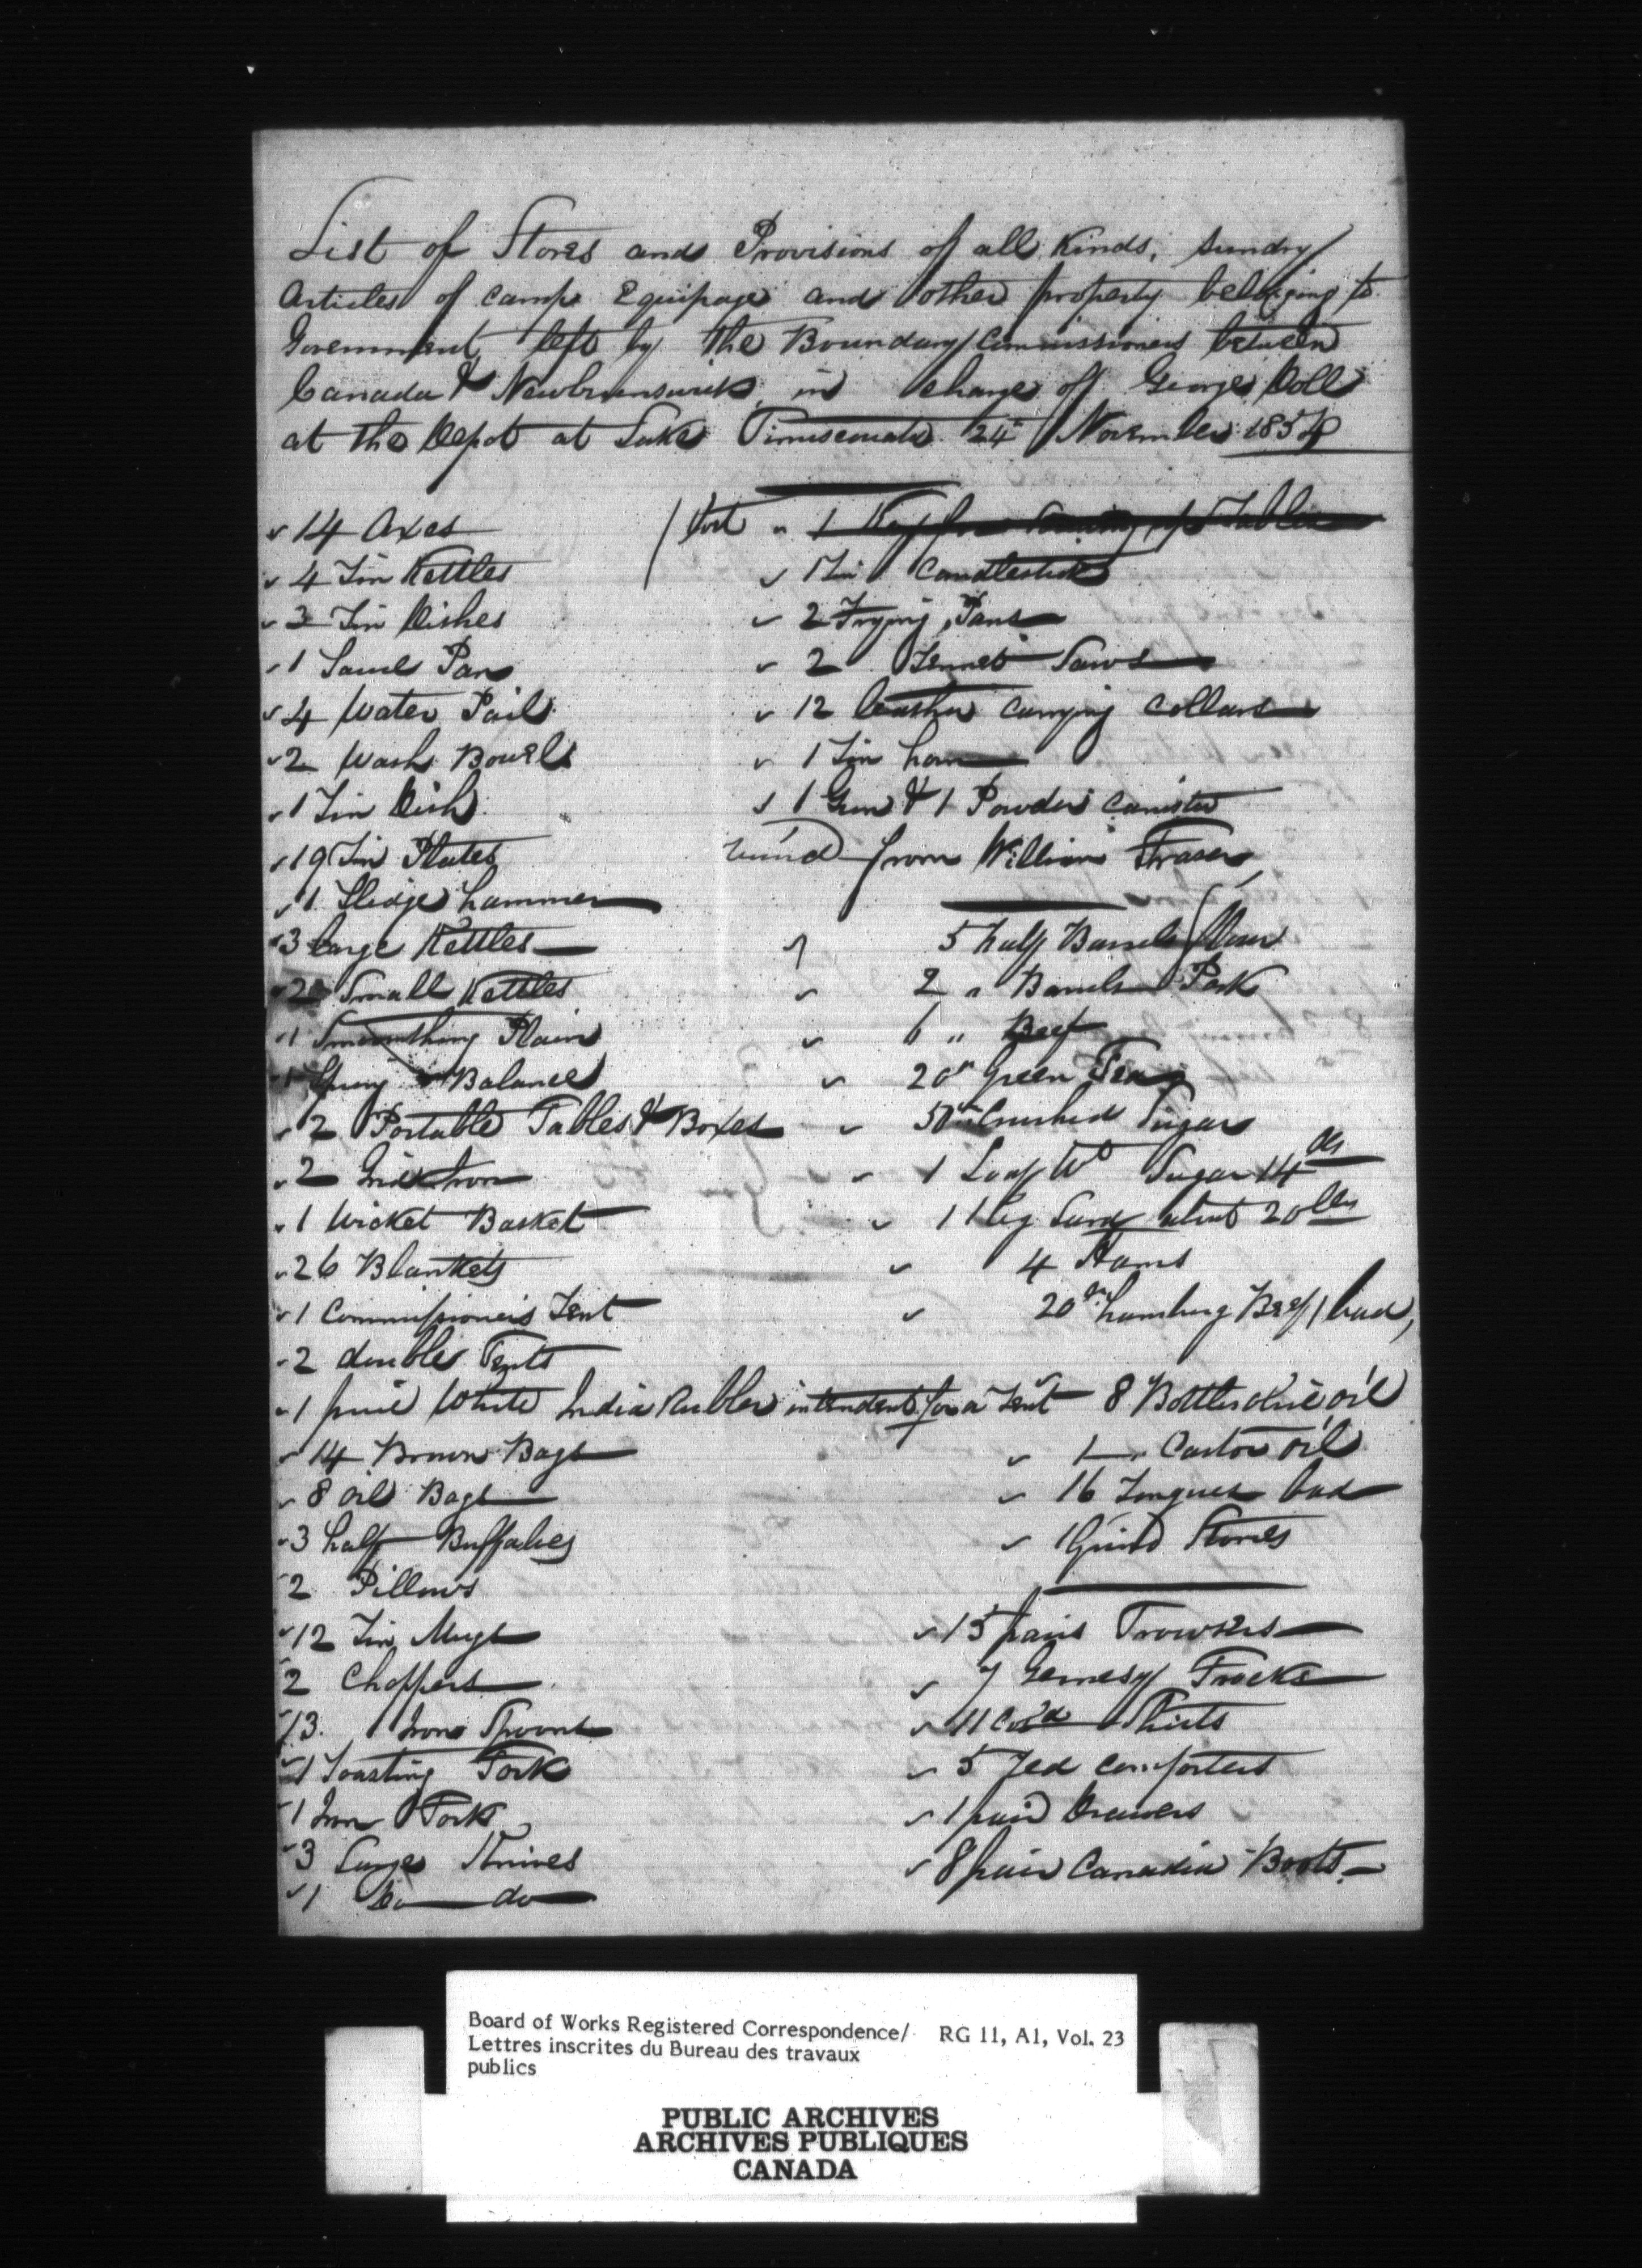 List of Stores and Provisions of all Kinds, Sundry
Articles of Camp Equipage and other property belonging to
Government, left by the Boundary Commissioners between
Canada & Newbrunswick, in charge of George Doll
at the Depot at Lake Timiscouata 24th November 1854
14 Axes
4 Tin Kettles
3 Tin Dishes
1 Pan
4 Water Pails
2 Wash Bowels
1 Tin Dish
19 Tin Plates
1 Sledge hammer
3 large Kettles
2 Small Kettles
1 Smoothing Plain
1 Spring Balance
2 Portable Tables & Boxes
2 Grid Iron
1 Wicket Basket
26 Blankets
1 Commissioners Tent
2 double Tents
1 piece White India Rubber intended for a Tent
14 Brown Bags
8 oil Bags
3 half Buffaloes
2 Pillows
12 Tin Mugs
2 Choppers
13 Iron Spoons
1 Toasting Fork
1 Iron Fork
3 Large Knives
1 Do do
Lost 1 Key for Screwing up Tables
1 Tin Candlestick
2 Frying Pans
2 Tennet Saws
12 leather carrying collars
1 Tin horn
1 Gun & 1 Powder Canister
from William Fraser
5 half Barrels flour
2 " Barrels Pork
6 " Beef
20 lb Green Tea
50 lbs Crushed Sugar
1 Loaf Wd Sugar 14 lbs
1 Keg Lard about 20 lbs
4 Hams
20 lbs hamburg Beef / bad,
8 Bottles olive oil
1 " Castor oil
16 Tongues bad
1 Grind Stones
15 pairs Trowsers
7 Gernesy Frocks
11 Shirts
5 red comforters
1 pair Drawers
8 pair Canadian Boots
Board of Works Registered Correspondence/ RG 11, A1, Vol. 23
Lettres inscrites du Bureau des travaux
publics
PUBLIC ARCHIVES
ARCHIVES PUBLIQUES
CANADA